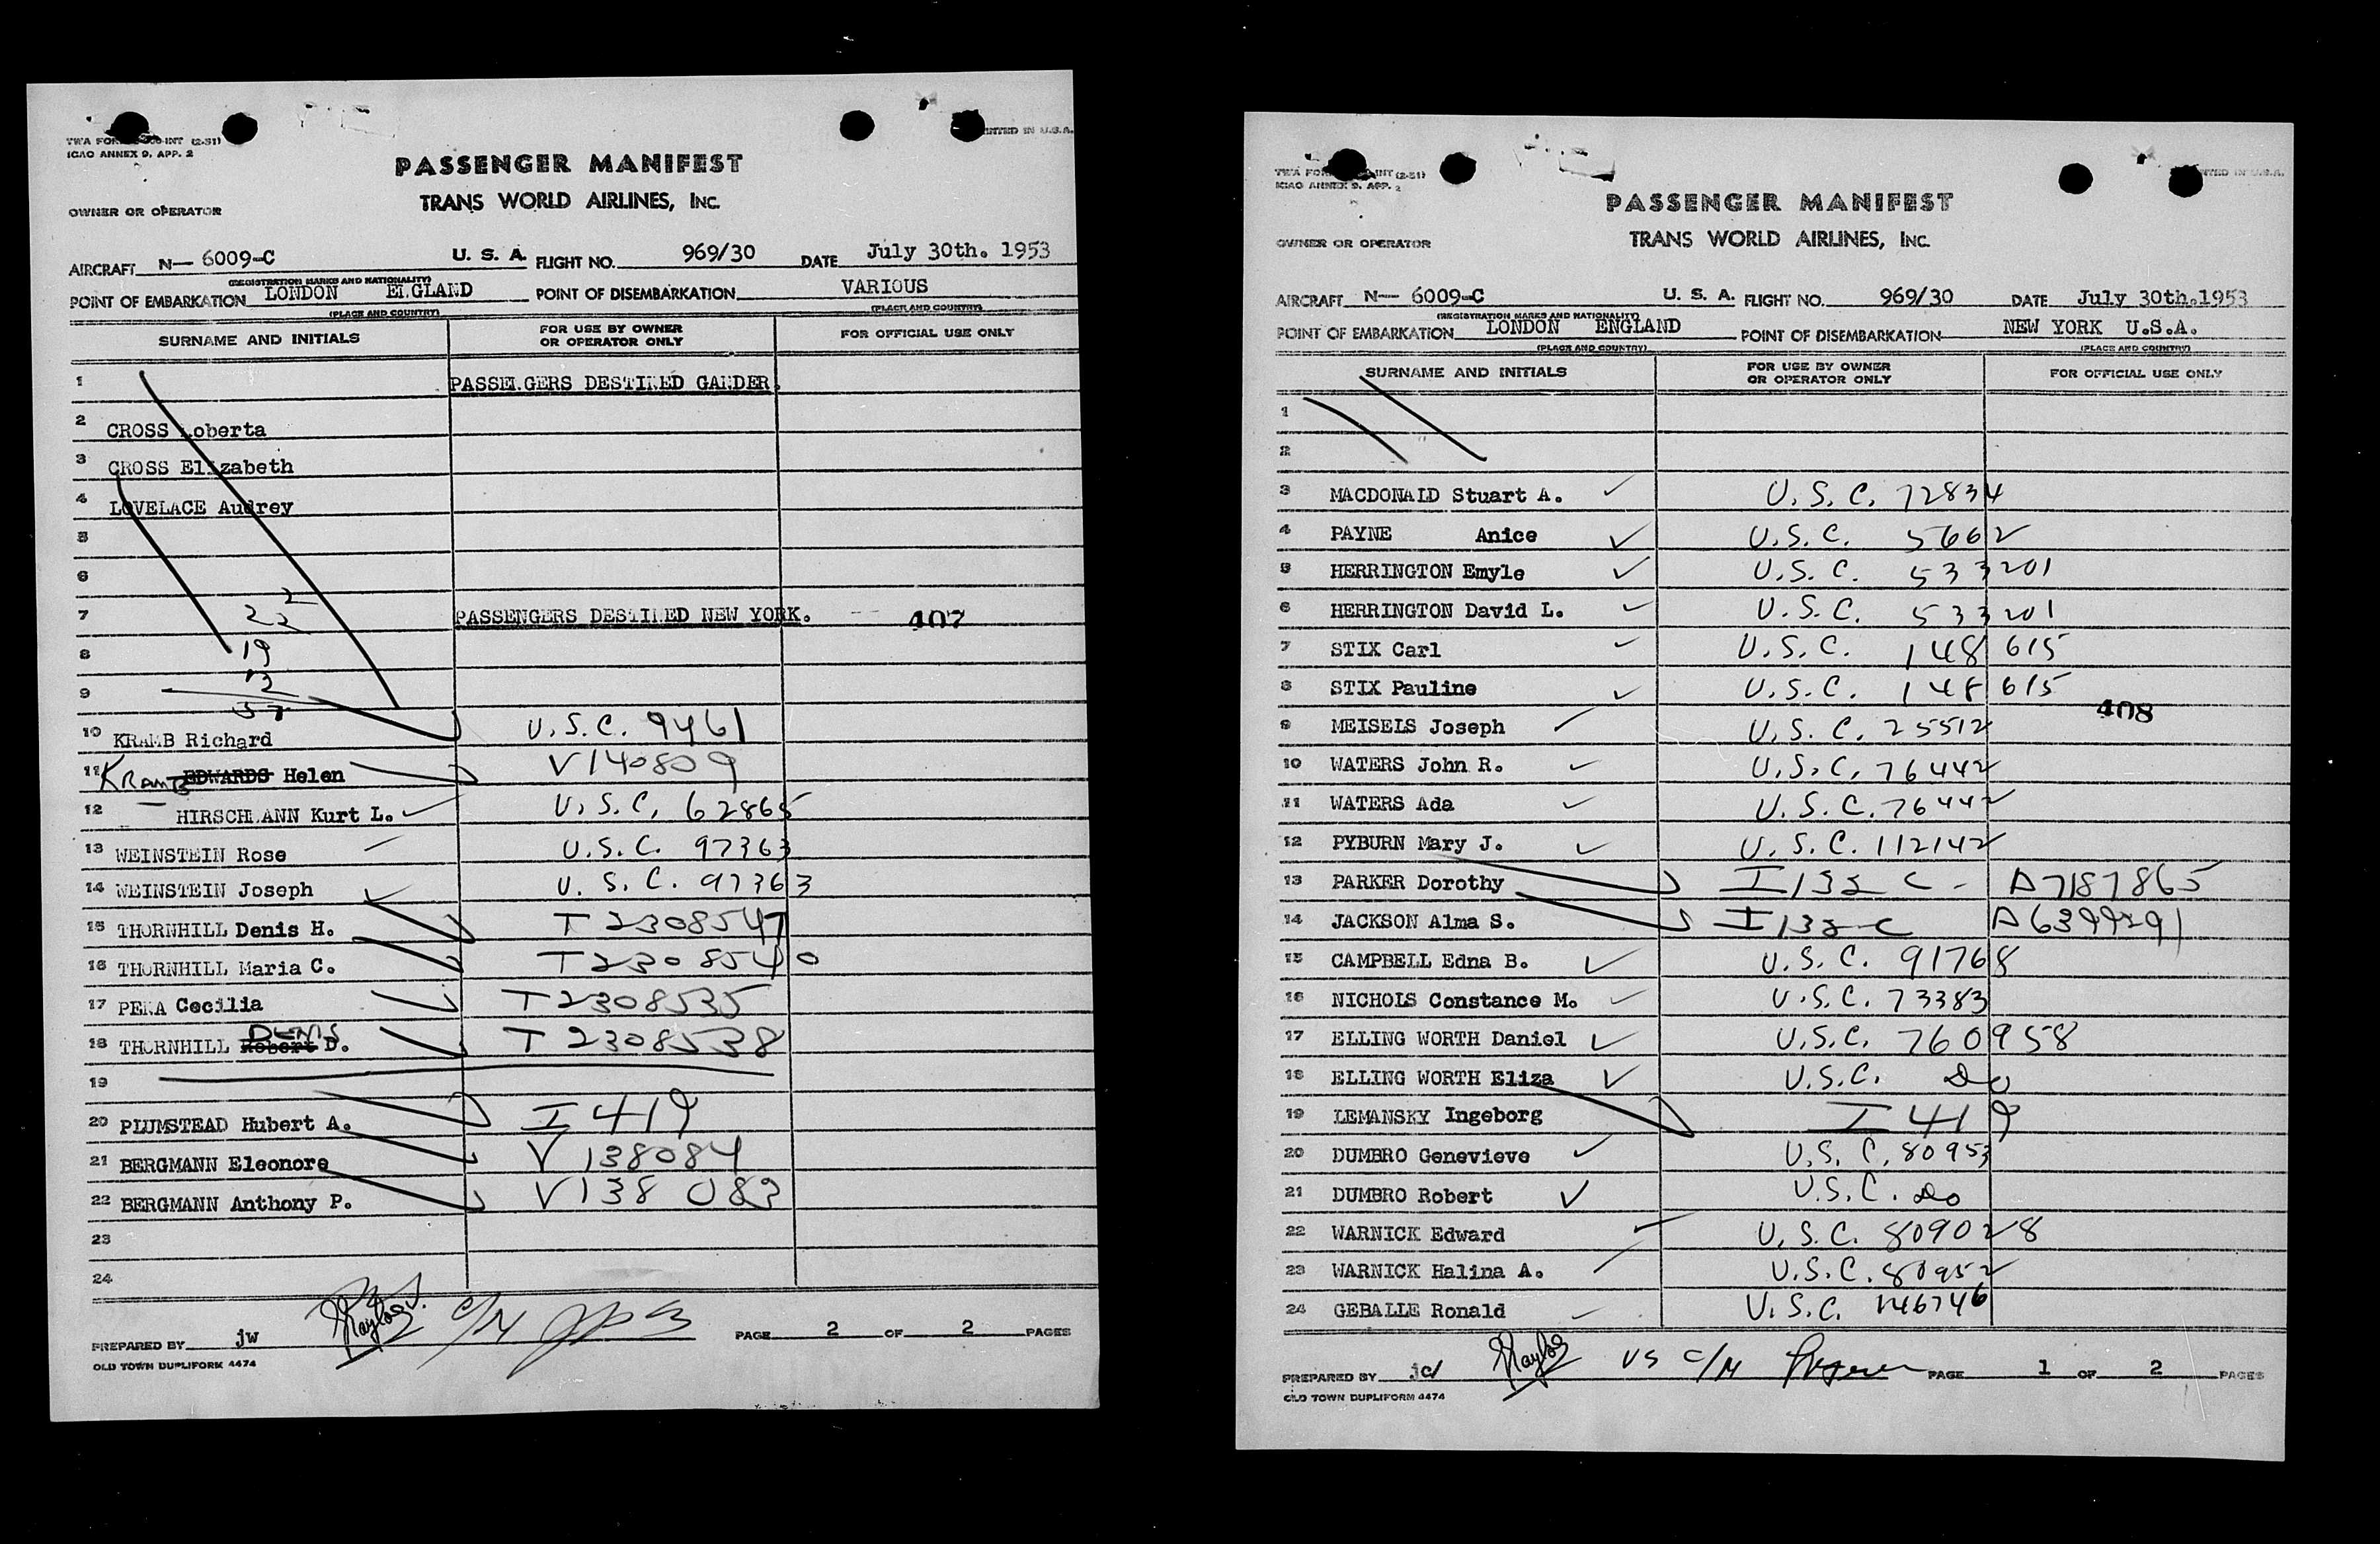 TWA FOR INT (2-51)
ICAO ANNEX 9. APP. 2
INTED IN U.S.A.
PASSENGER MANIFEST
TRANS WORLD AIRLINES, INC.
OWNER OR OPERATOR
AIRCRAFT N— 6009-C U. S. A. FLIGHT NO. 969/30 DATE July 30th. 1953
(REGISTRATION MARKS AND NATIONALITY)
POINT OF EMBARKATION LONDON ENGLAND POINT OF DISEMBARKATION VARIOUS
(PLACE AND COUNTRY) (PLACE AND COUNTRY)
SURNAME AND INITIALS FOR USE BY OWNER OR OPERATOR ONLY FOR OFFICIAL USE ONLY
1 PASSENGERS DESTINED GANDER.
2 CROSS Roberta
3 CROSS Elizabeth
4 LOVELACE Audrey
5
6
7 22 2 PASSENGERS DESTINED NEW YORK. -- 407
8 19
9 12
10 KRAMB Richard U.S.C. 9461
11 KRAMB EDWARDS Helen V140809
12 HIRSCHMANN Kurt L. U.S.C. 62865
13 WEINSTEIN Rose U.S.C. 97363
14 WEINSTEIN Joseph U.S.C. 97363
15 THORNHILL Denis H. T 2308547
16 THORNHILL Maria C. T2308540
17 PENA Cecilia T2308535
18 THORNHILL Robert DENIS D. T 2308538
19
20 PLUMSTEAD Hubert A. I 419
21 BERGMANN Eleonore V 138084
22 BERGMANN Anthony P. V138 083
23
24
PREPARED BY jw C/M PAGE 2 OF 2 PAGES
OLD TOWN DUPLIFORM 4474
TWA FOR INT (2-51)
ICAO ANNEX 9. APP. 2
NTED IN U.S.A.
PASSENGER MANIFEST
TRANS WORLD AIRLINES, INC.
OWNER OR OPERATOR
AIRCRAFT N— 6009-C U. S. A. FLIGHT NO. 969/30 DATE July 30th.1953
(REGISTRATION MARKS AND NATIONALITY)
POINT OF EMBARKATION LONDON ENGLAND POINT OF DISEMBARKATION NEW YORK U.S.A.
(PLACE AND COUNTRY) (PLACE AND COUNTRY)
SURNAME AND INITIALS FOR USE BY OWNER OR OPERATOR ONLY FOR OFFICIAL USE ONLY
1
2
3 MACDONALD Stuart A. U.S.C. 72834
4 PAYNE Anice U.S.C. 5662
5 HERRINGTON Emyle U.S.C. 533201
6 HERRINGTON David L. U.S.C. 533201
7 STIX Carl U.S.C. 148 615
8 STIX Pauline U.S.C. 148 615
408
9 MEISELS Joseph U.S.C. 25512
10 WATERS John R. U.S.C. 76442
11 WATERS Ada U.S.C. 76442
12 PYBURN Mary J. U.S.C. 112142
13 PARKER Dorothy I 132 C - A7187865
14 JACKSON Alma S. I 132 C A6399291
15 CAMPBELL Edna B. U.S.C. 91768
16 NICHOLS Constance M. U.S.C. 73383
17 ELLING WORTH Daniel U.S.C. 760958
18 ELLING WORTH Eliza U.S.C. Do
19 LEMANSKY Ingeborg I 419
20 DUMBRO Genevieve U.S.C. 80953
21 DUMBRO Robert U.S.C. Do
22 WARNICK Edward U.S.C. 809028
23 WARNICK Halina A. U.S.C. 80952
24 GEBALLE Ronald U.S.C. 146746
PREPARED BY US C/M PAGE 1 OF 2 PAGES
OLD TOWN DUPLIFORM 4474